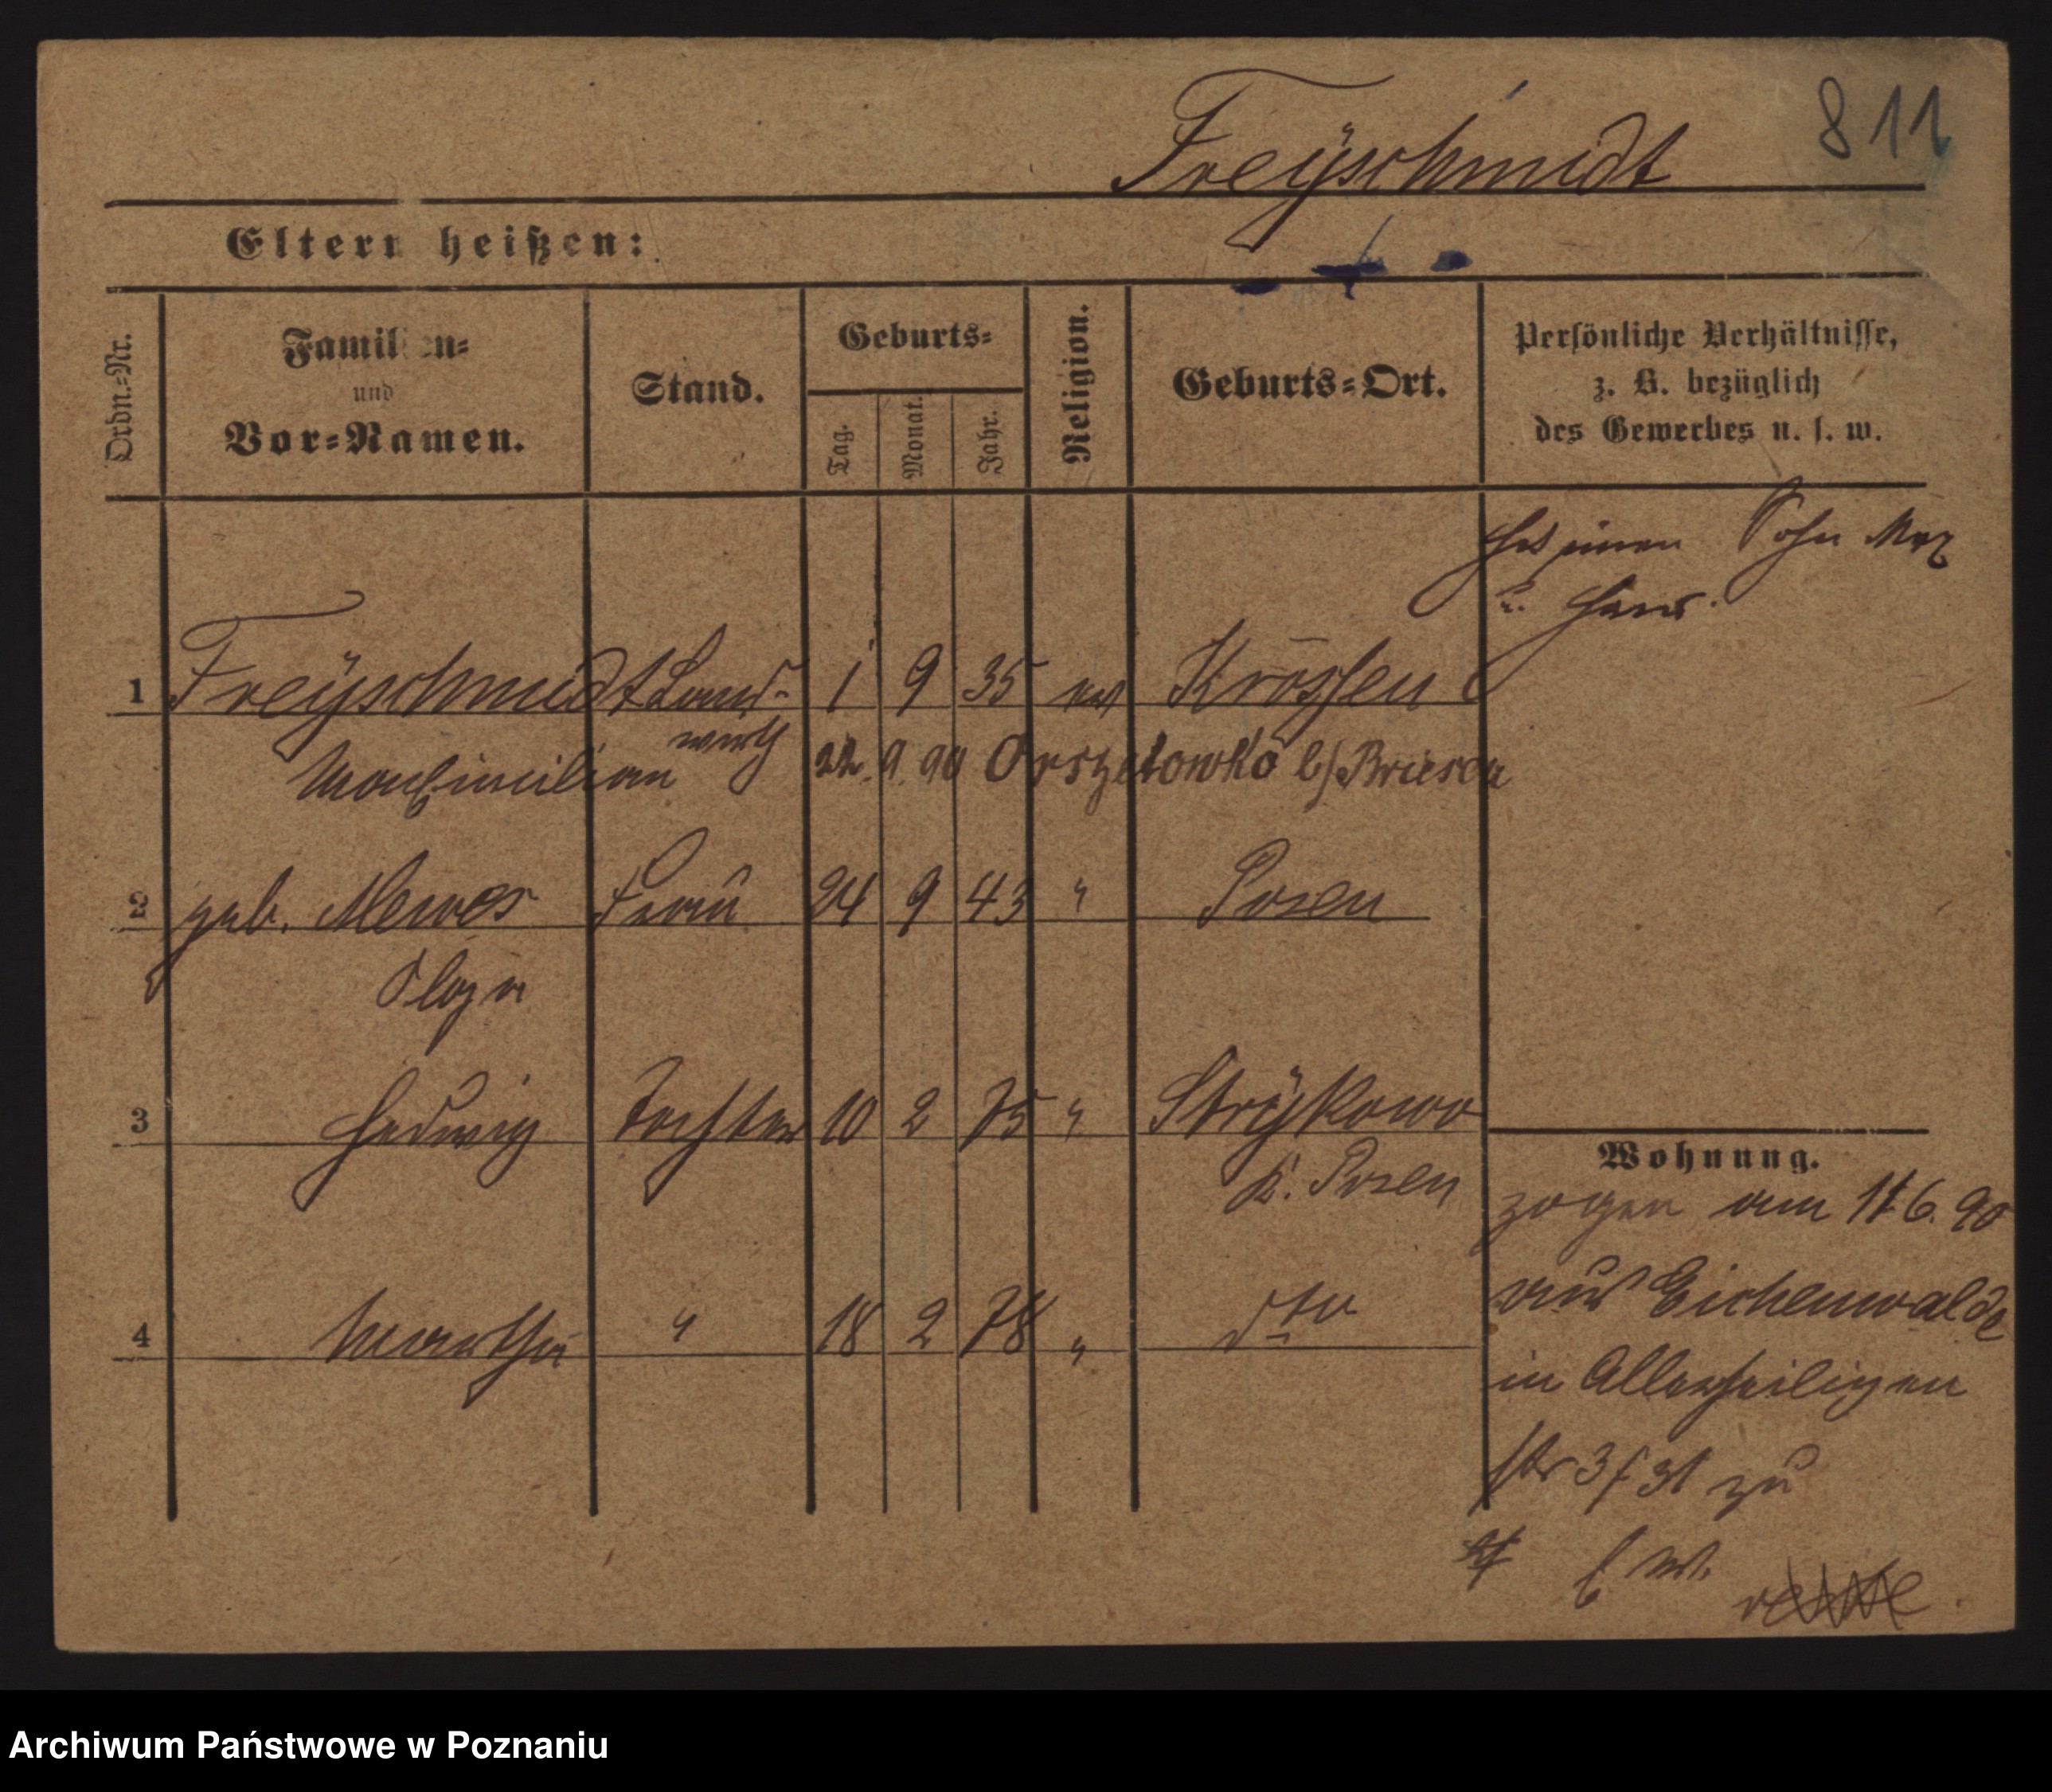 811
Freÿschmidt
Eltern heißen:
Ordn.-Nr.
Familien-
und
Vor-Namen.
Stand.
Geburts-
Tag.
Monat.
Jahr.
Religion.
Geburts-Ort.
Persönliche Verhältnisse,
z. B. bezüglich
des Gewerbes u. s. w.
hat einen Sohn Max
u. Hans.
1 Freÿschmidt Land- 1 9 35 ev Krossen
wirth
Maximilian 22. 9. 90 Orszetowko b/Briesen
2 geb. Mewes Frau 24 9 43 " Posen
Olga
3 Hedwig Tochter 10 2 75 " Strÿkowo
K. Posen
4 Martha " 18 2 78 " dto
Wohnung.
zogen am 11 6. 90
aus Eichenwalde
in Allerheiligen
str 3/31 zu
Archiwum Państwowe w Poznaniu